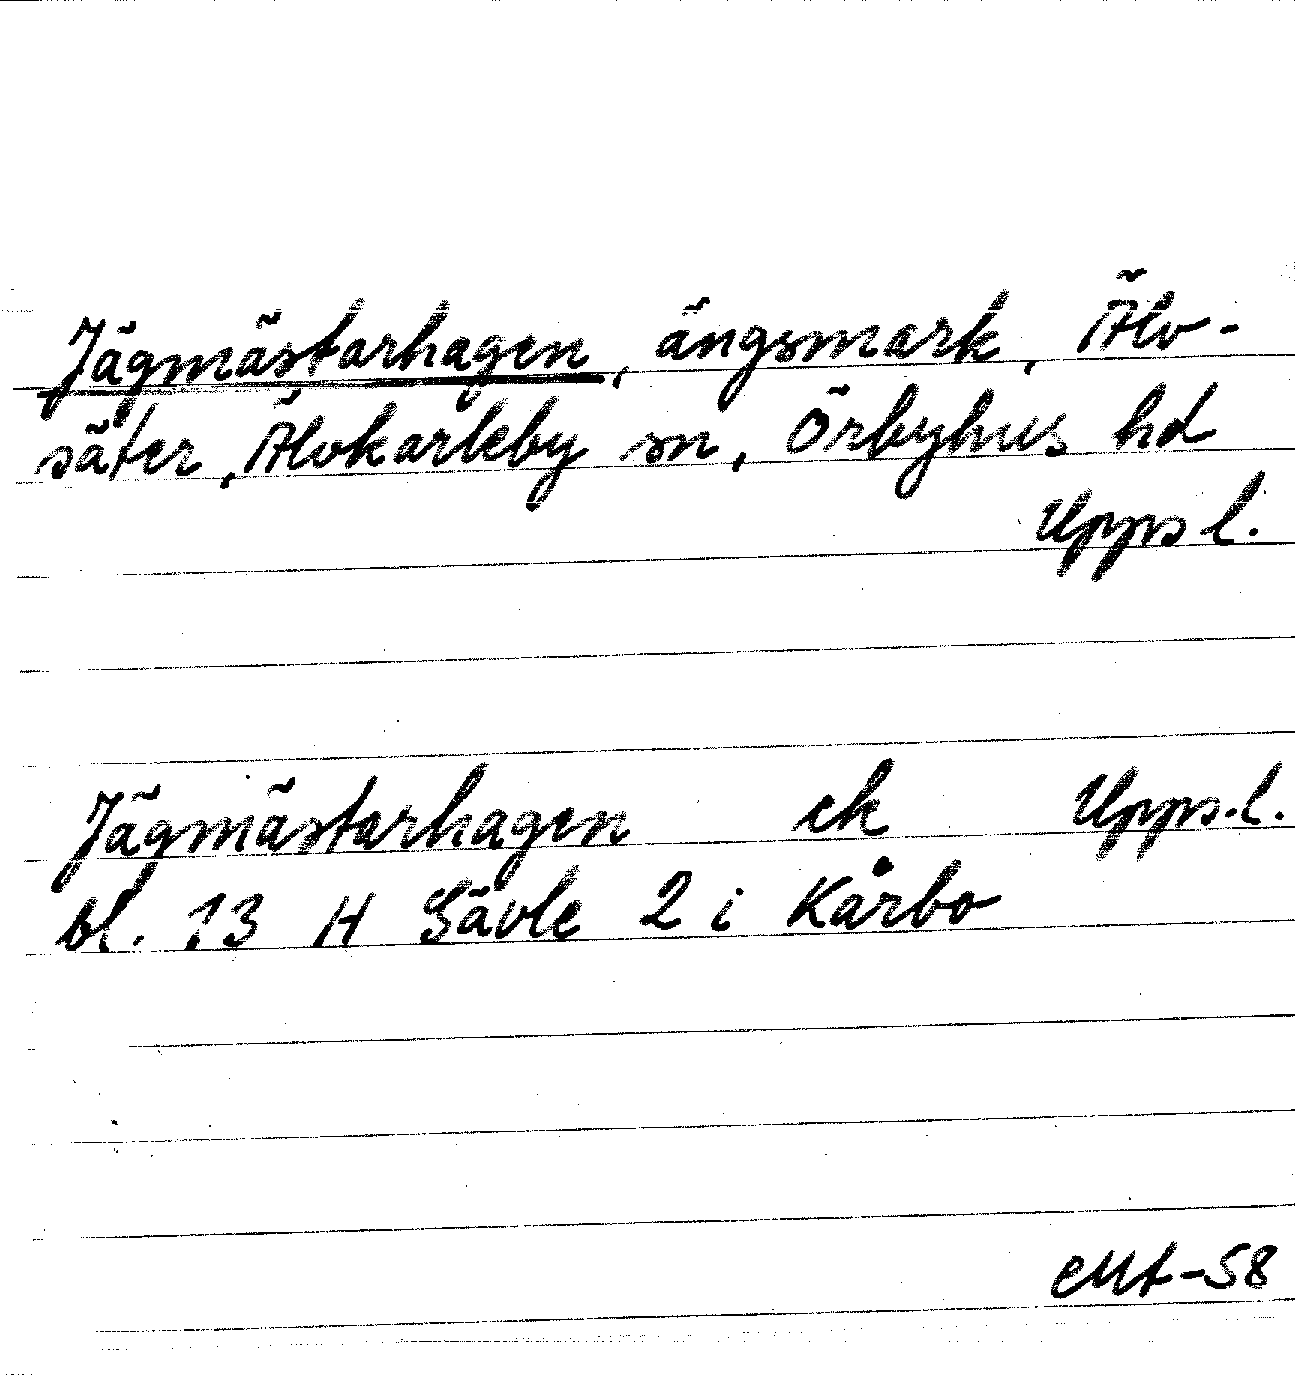 Jägmästarhagen, ängsmark, Älv-
säter, Älvkarleby sn, Örbyhus hd
Upps l.
Jägmästarhagen ek Upps.l.
bl. 13 H Gävle 2 i Kårbo